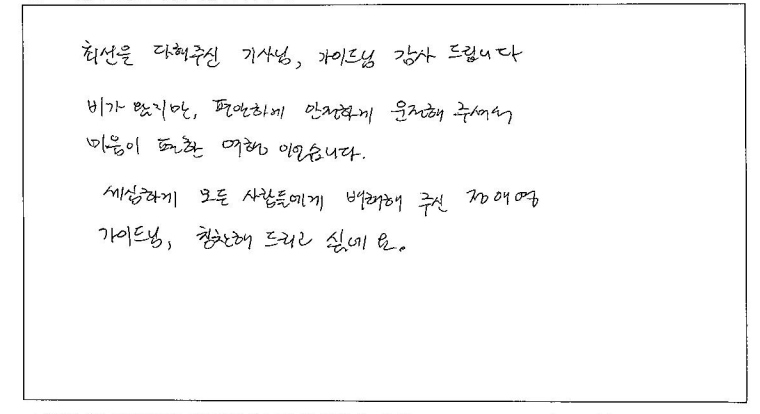 최선을 다해주신 기사님, 가이드님 감사 드립니다
비가 왔지만, 편안하게 안전하게 운전해 주셔서
마음이 편한 여행 이였습니다.
세심하게 모든 사람들에게 배려해 주신 정애영
가이드님, 칭찬해 드리고 싶네요.